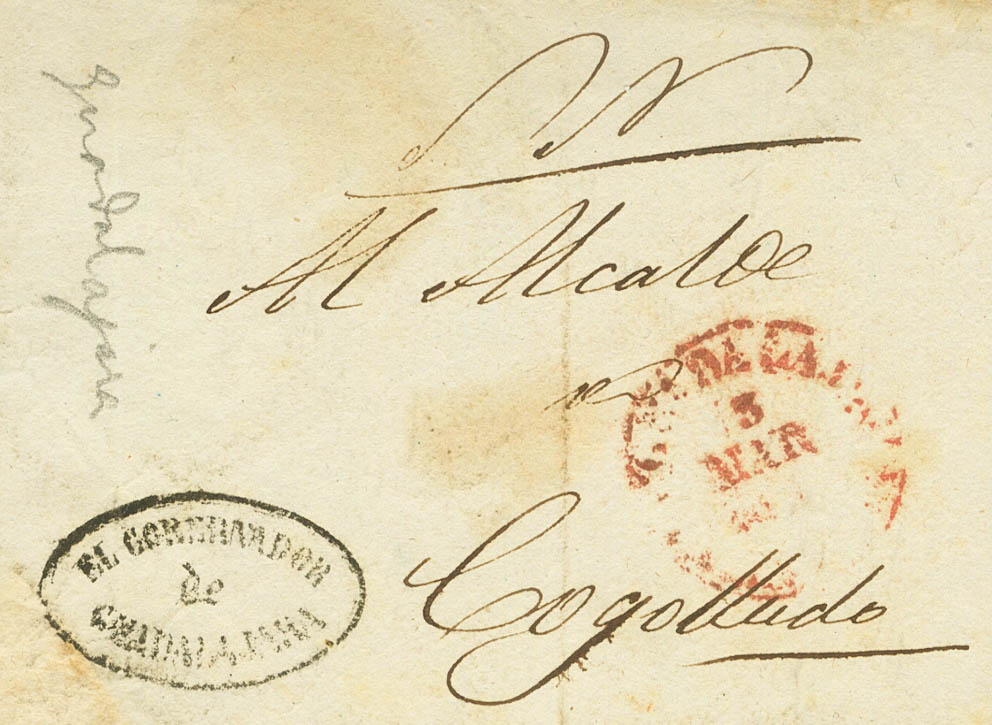 S. N.
Al Alcalde
de
Cogolludo
3
MAR
EL GOBERNADOR
de
GUADALAJARA
guadalajara